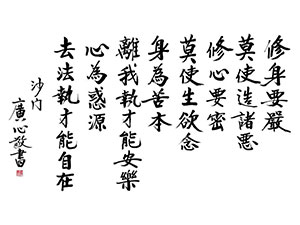 修身要嚴
莫使造諸惡
修心要密
莫使生欲念
身為苦本
離我執才能安樂
心為惑源
去法執才能自在
沙門
廣心敬書